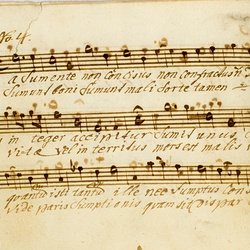 No 4.
A Sumente non Concisus non confractus n
Sumunt boni Sumunt mali Sorte tamen
in teger accipitur Sumit unus
vitæ vel in teritus mors est malis v
quantū isti tantū ille nec Sumptus Con
Vide paris Sumpti onis quam sit dispar